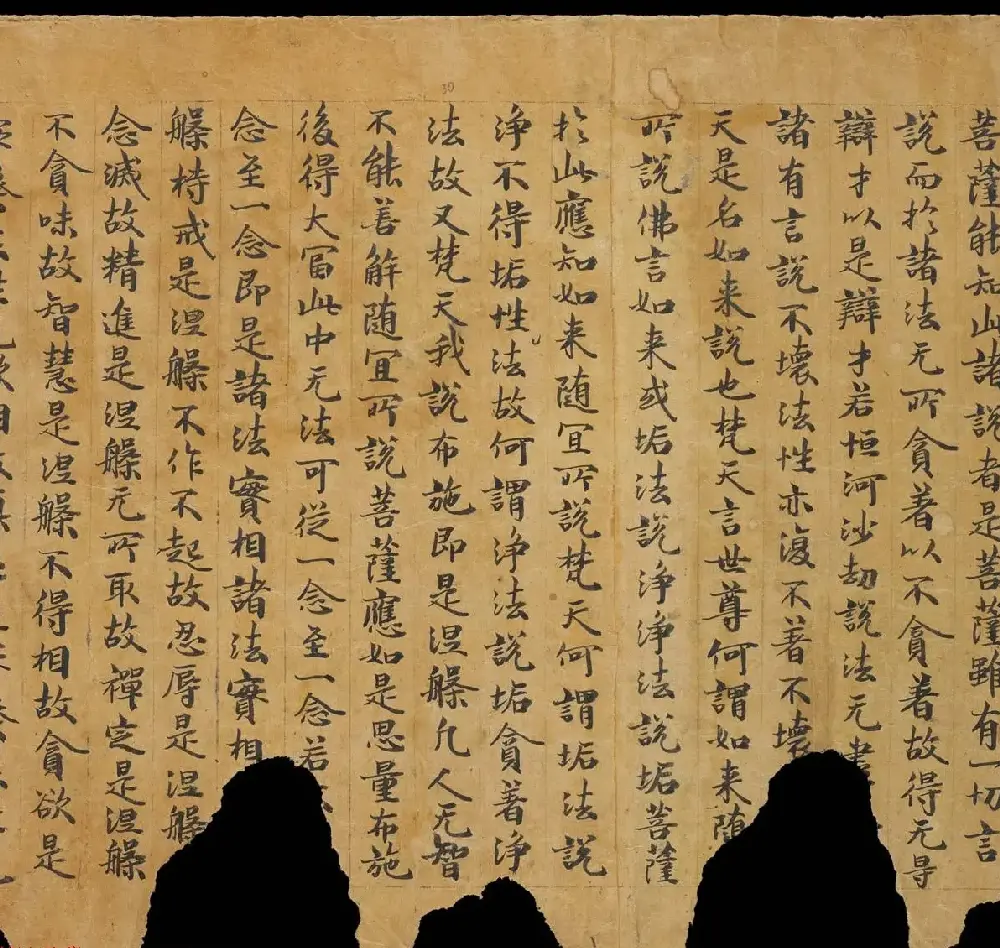 菩薩能知此諸說者是菩薩雖有一切言
說而於諸法无所貪著以不貪著故得无㝵
辯才以是辯才若恒河沙劫說法无
諸有言說不壞法性亦復不著不壞
天是名如来說也梵天言世尊何謂如来随
所說佛言如来或垢法說淨淨法說垢菩薩
於此應知如来随冝所說梵天何謂垢法說
淨不得垢性法故何謂淨法說垢貪著淨
法故又梵天我說布施即是涅槃凡人无智
不能善解随冝所說菩薩應如是思量布施
後得大冨此中无法可從一念至一念若
念至一念即是諸法實相諸法實相
槃持戒是涅槃不作不起故忍辱是涅槃
念滅故精進是涅槃无所取故禪定是涅槃
不貪味故智慧是涅槃不得相故貪欲是